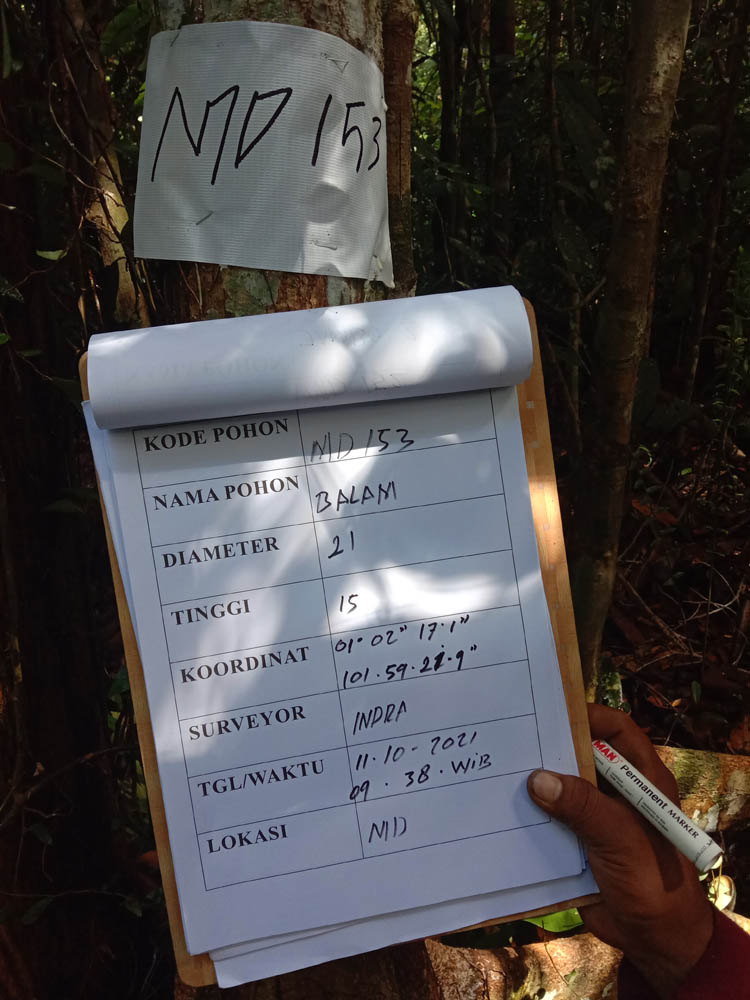 MD 153
KODE POHON MD 153
NAMA POHON BALAM
DIAMETER 21
TINGGI 15
KOORDINAT 01·02" 17·1"
101·59·21·9"
SURVEYOR INDRA
TGL/WAKTU 11·10-2021
09·38·WIB
LOKASI MD
MAN Permanent MARKER